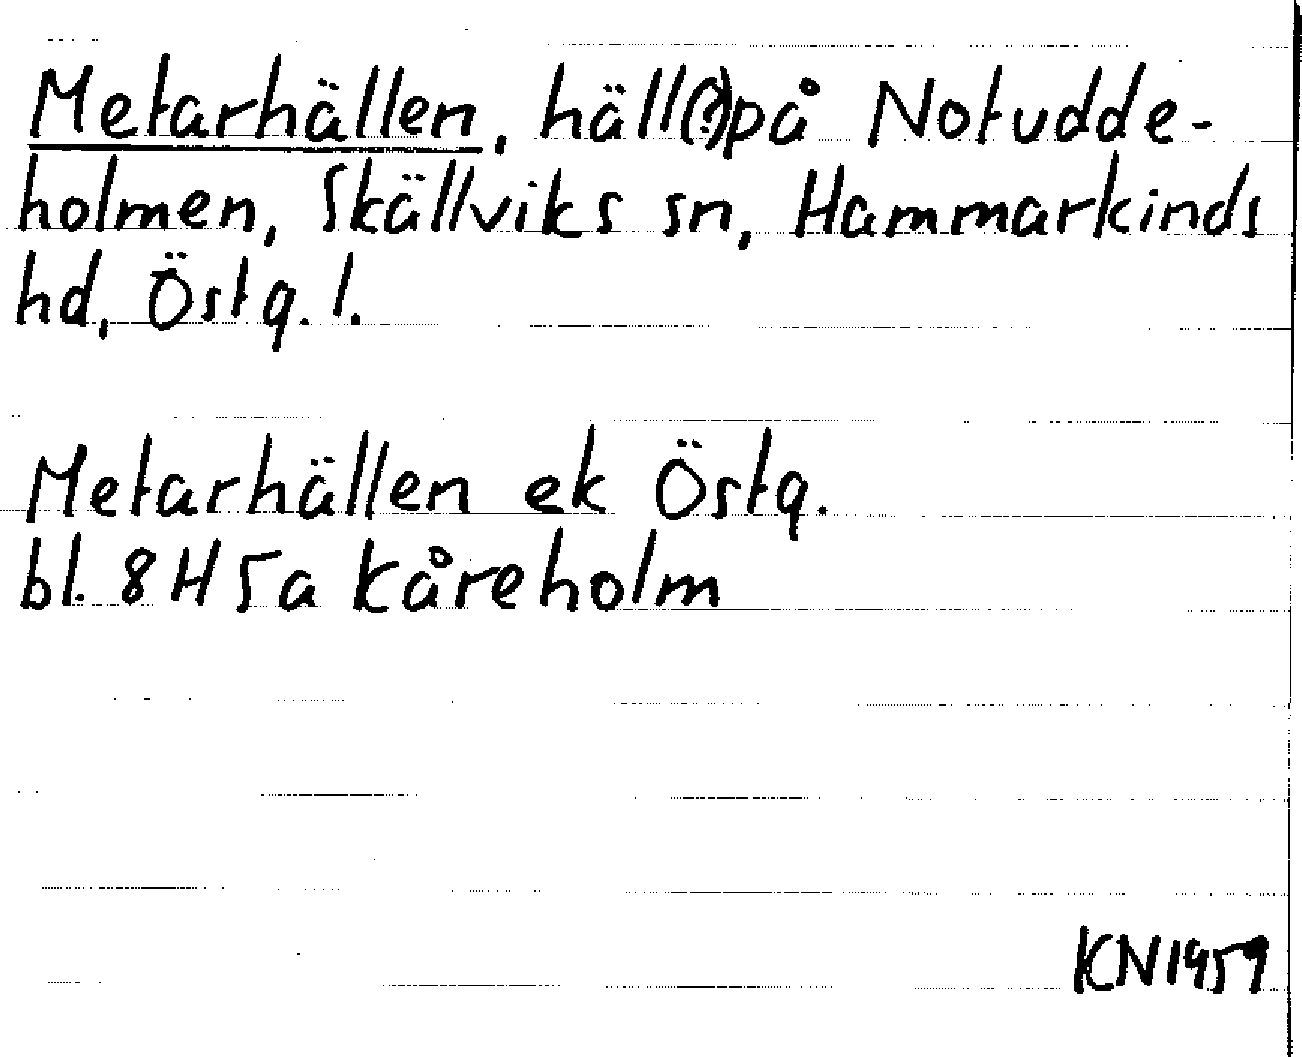 Metarhällen, häll(?) på Notudde-
holmen, Skällviks sn, Hammarkinds
hd, Östg. l.
Metarhällen ek Östg.
bl. 8H5a Kåreholm
KN1959